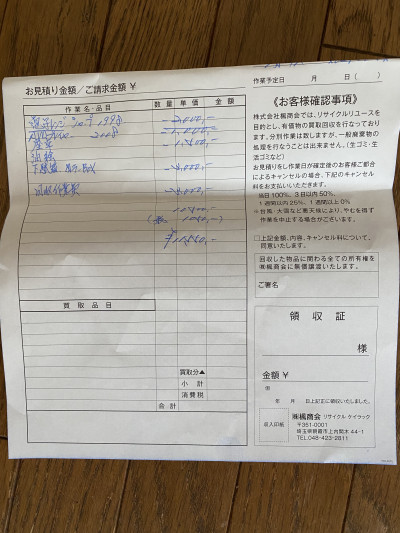 お見積り金額／ご請求金額 ￥
作業名・品目 数量 単価 金額
1998
2,000,-
2008
下駄箱
回収作業費
買取品目
買取分▲
小計
消費税
合計
作業予定日 月 日（ ）
《お客様確認事項》
株式会社楓商会では、リサイクルリユースを
目的とし、有価物の買取回収を行なっており
ます。分別作業は致しますが、一般廃棄物の
処理を行なうことは出来ません。（生ゴミ・生
活ゴミなど）
お見積りをし作業日が確定後のお客様ご都合
によるキャンセルの場合、下記のキャンセル
料をお支払いいただきます。
当日 100%、3日以内 50%、
1週間以内 25%、1週間以上 0%
＊台風・大雪など悪天候により、やむを得ず
作業を中止する場合がございます。
□上記金額、内容、キャンセル料について、
同意いたします。
回収した物品に関わる全ての所有権を
㈱楓商会に無償譲渡いたします。
ご署名
領収証
様
金額￥
但
年 月 日上記正に領収いたしました。
収入印紙
㈱楓商会 リサイクル ケイラック
〒351-0001
埼玉県朝霞市上内間木44-1
TEL.048-423-2811